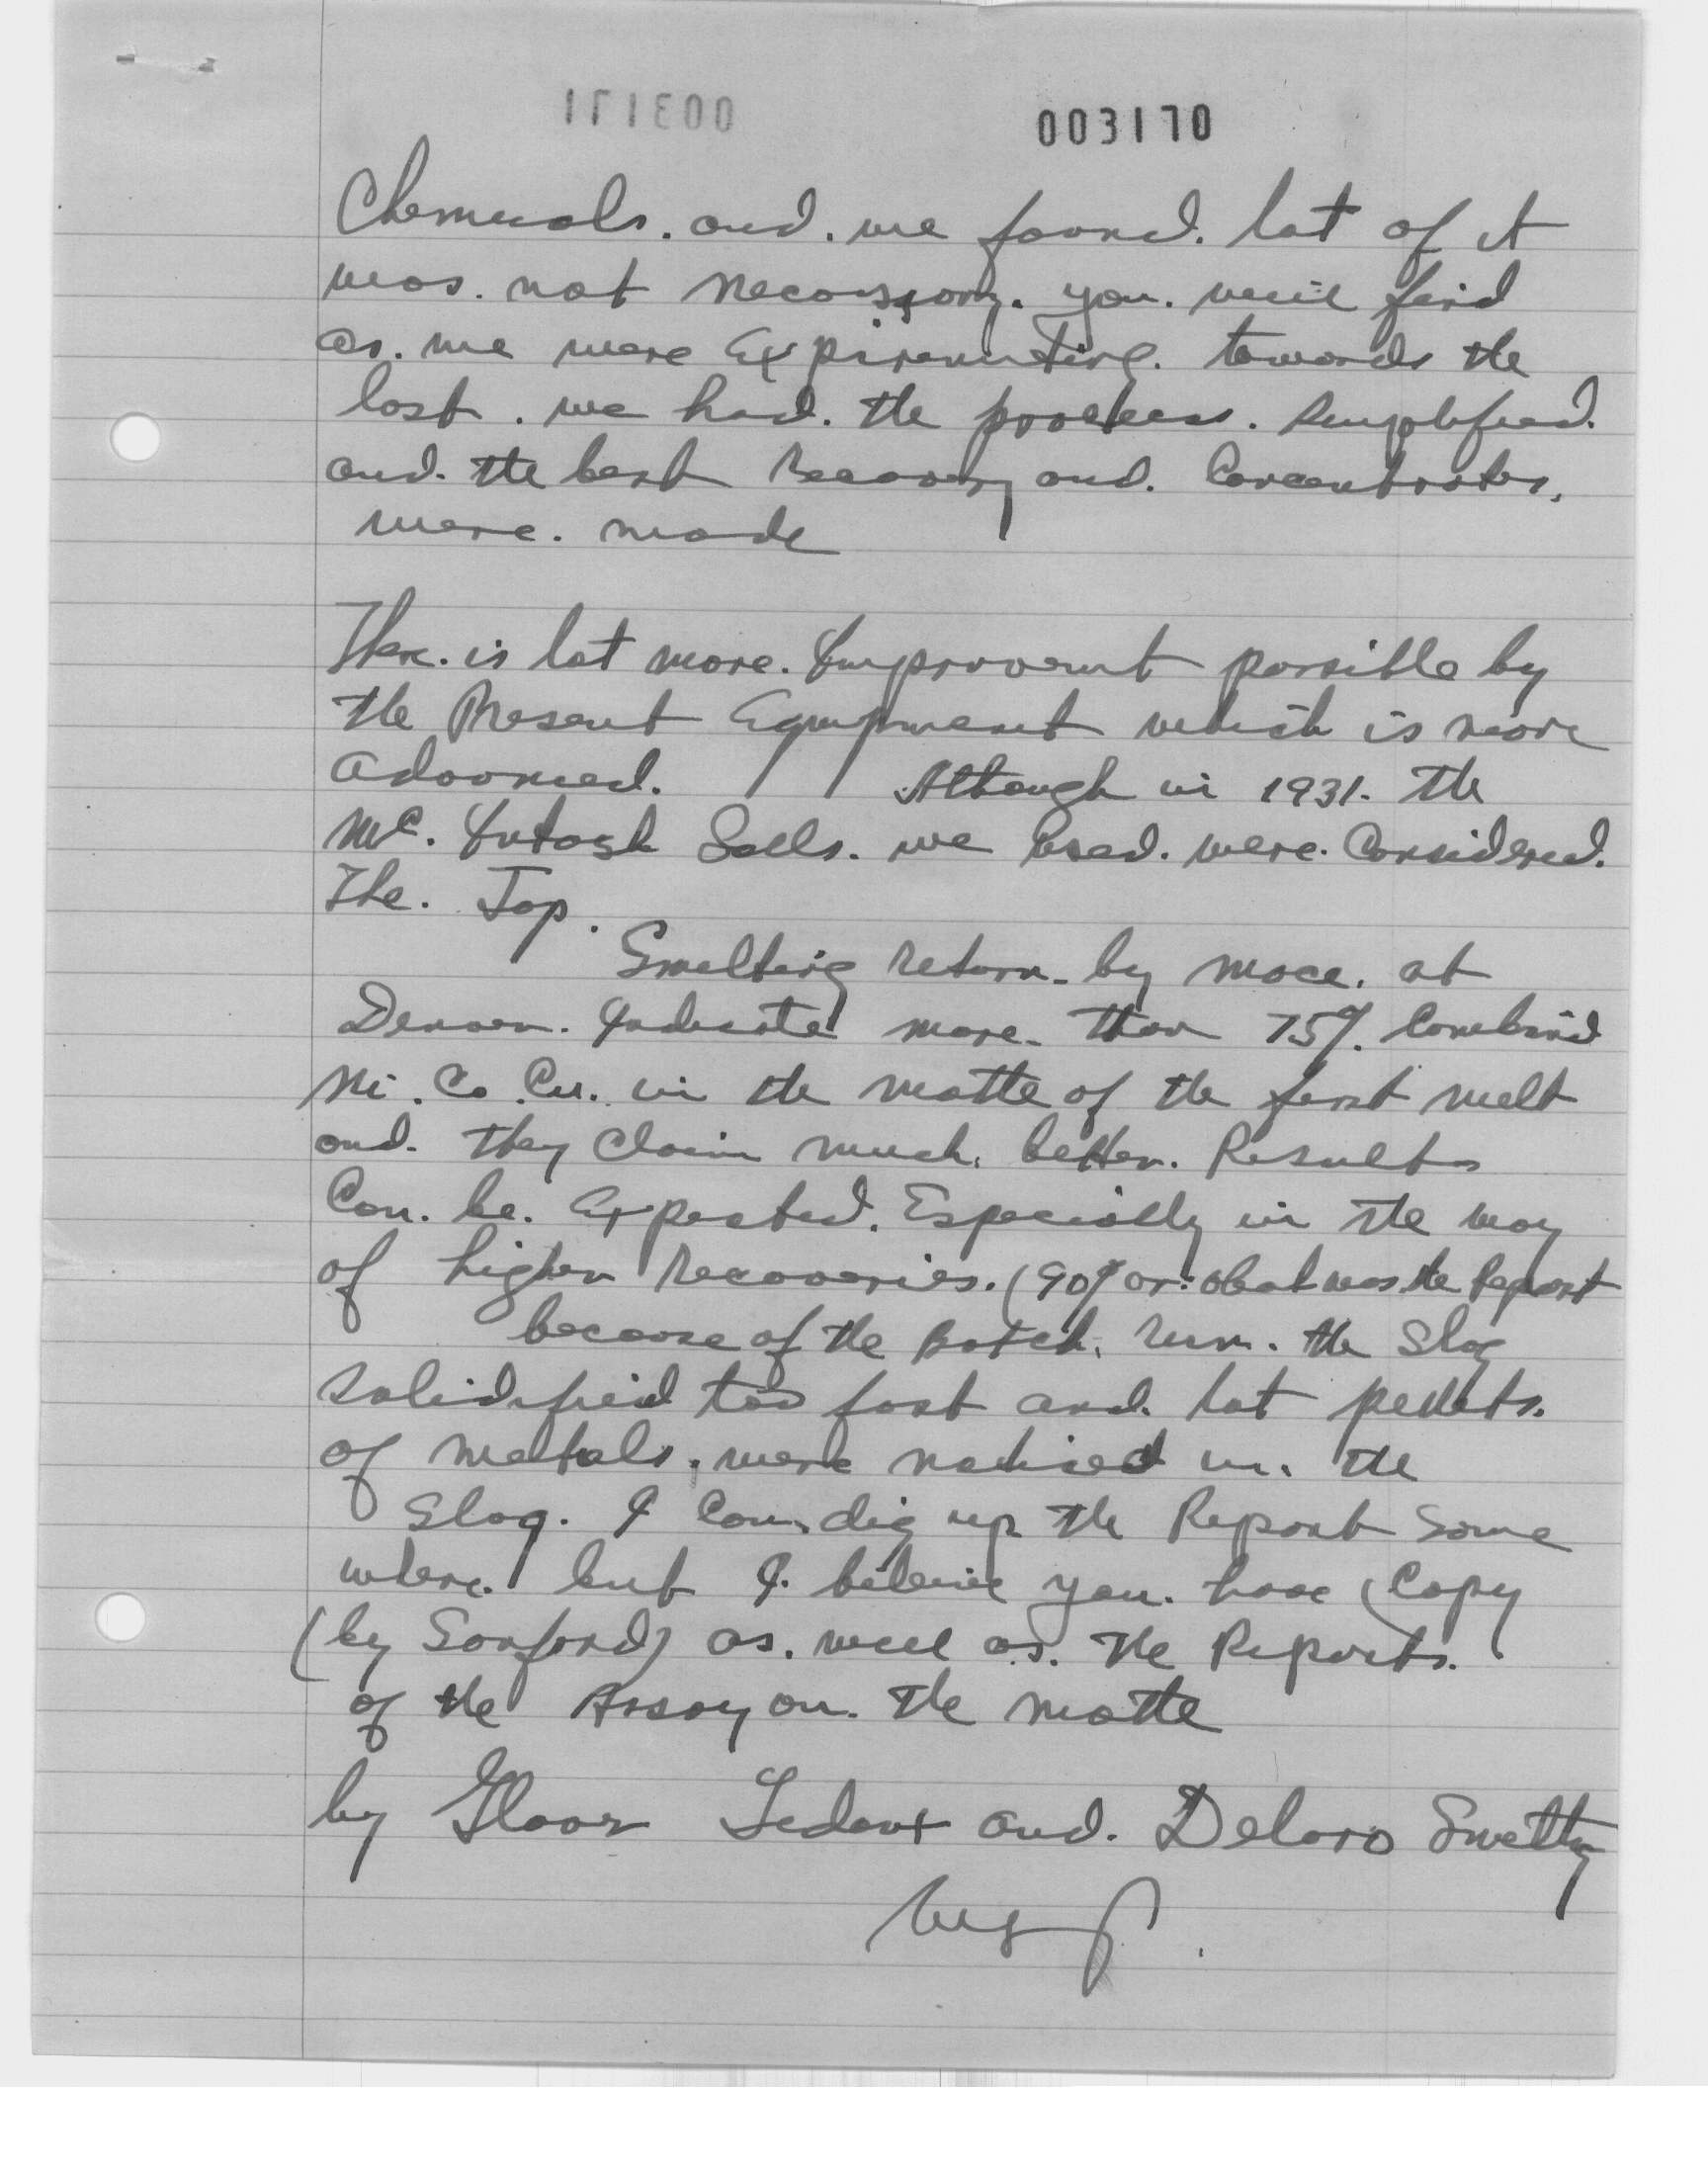 003170
Chemicals. and. we found. lot of it
was. not necessary. you. will find
as. we were Expirementing. towards the
last. we had. the process. simplified.
and. the best Recovery and. Concentrates,
were. made
There. is lot more. Improvemt possible by
the Present Equipment which is more
advanced. Although in 1931. the
Mc. Intosh Sells. we used. were. Considered.
The. Top.
Smelting return. by mace. at
Denver. Indicate more. than 75% Combined
Ni. Co. Cu. in the matte of the first melt
and. they claim much. better. Results
Can. be. Expected. Especially in the way
of higher recoveries. (90% or: about was the Report
because of the Batch. run. the Slag
Solidified too fast and. lot pellets.
of metals. were noticed in. the
Slag. I can. dig up the Report some
where. but I. believe you. have Copy
(by Sanford) as. well as. the Reports.
of the Assay on. the matte
by Ledoux and. Deloro Smeltg